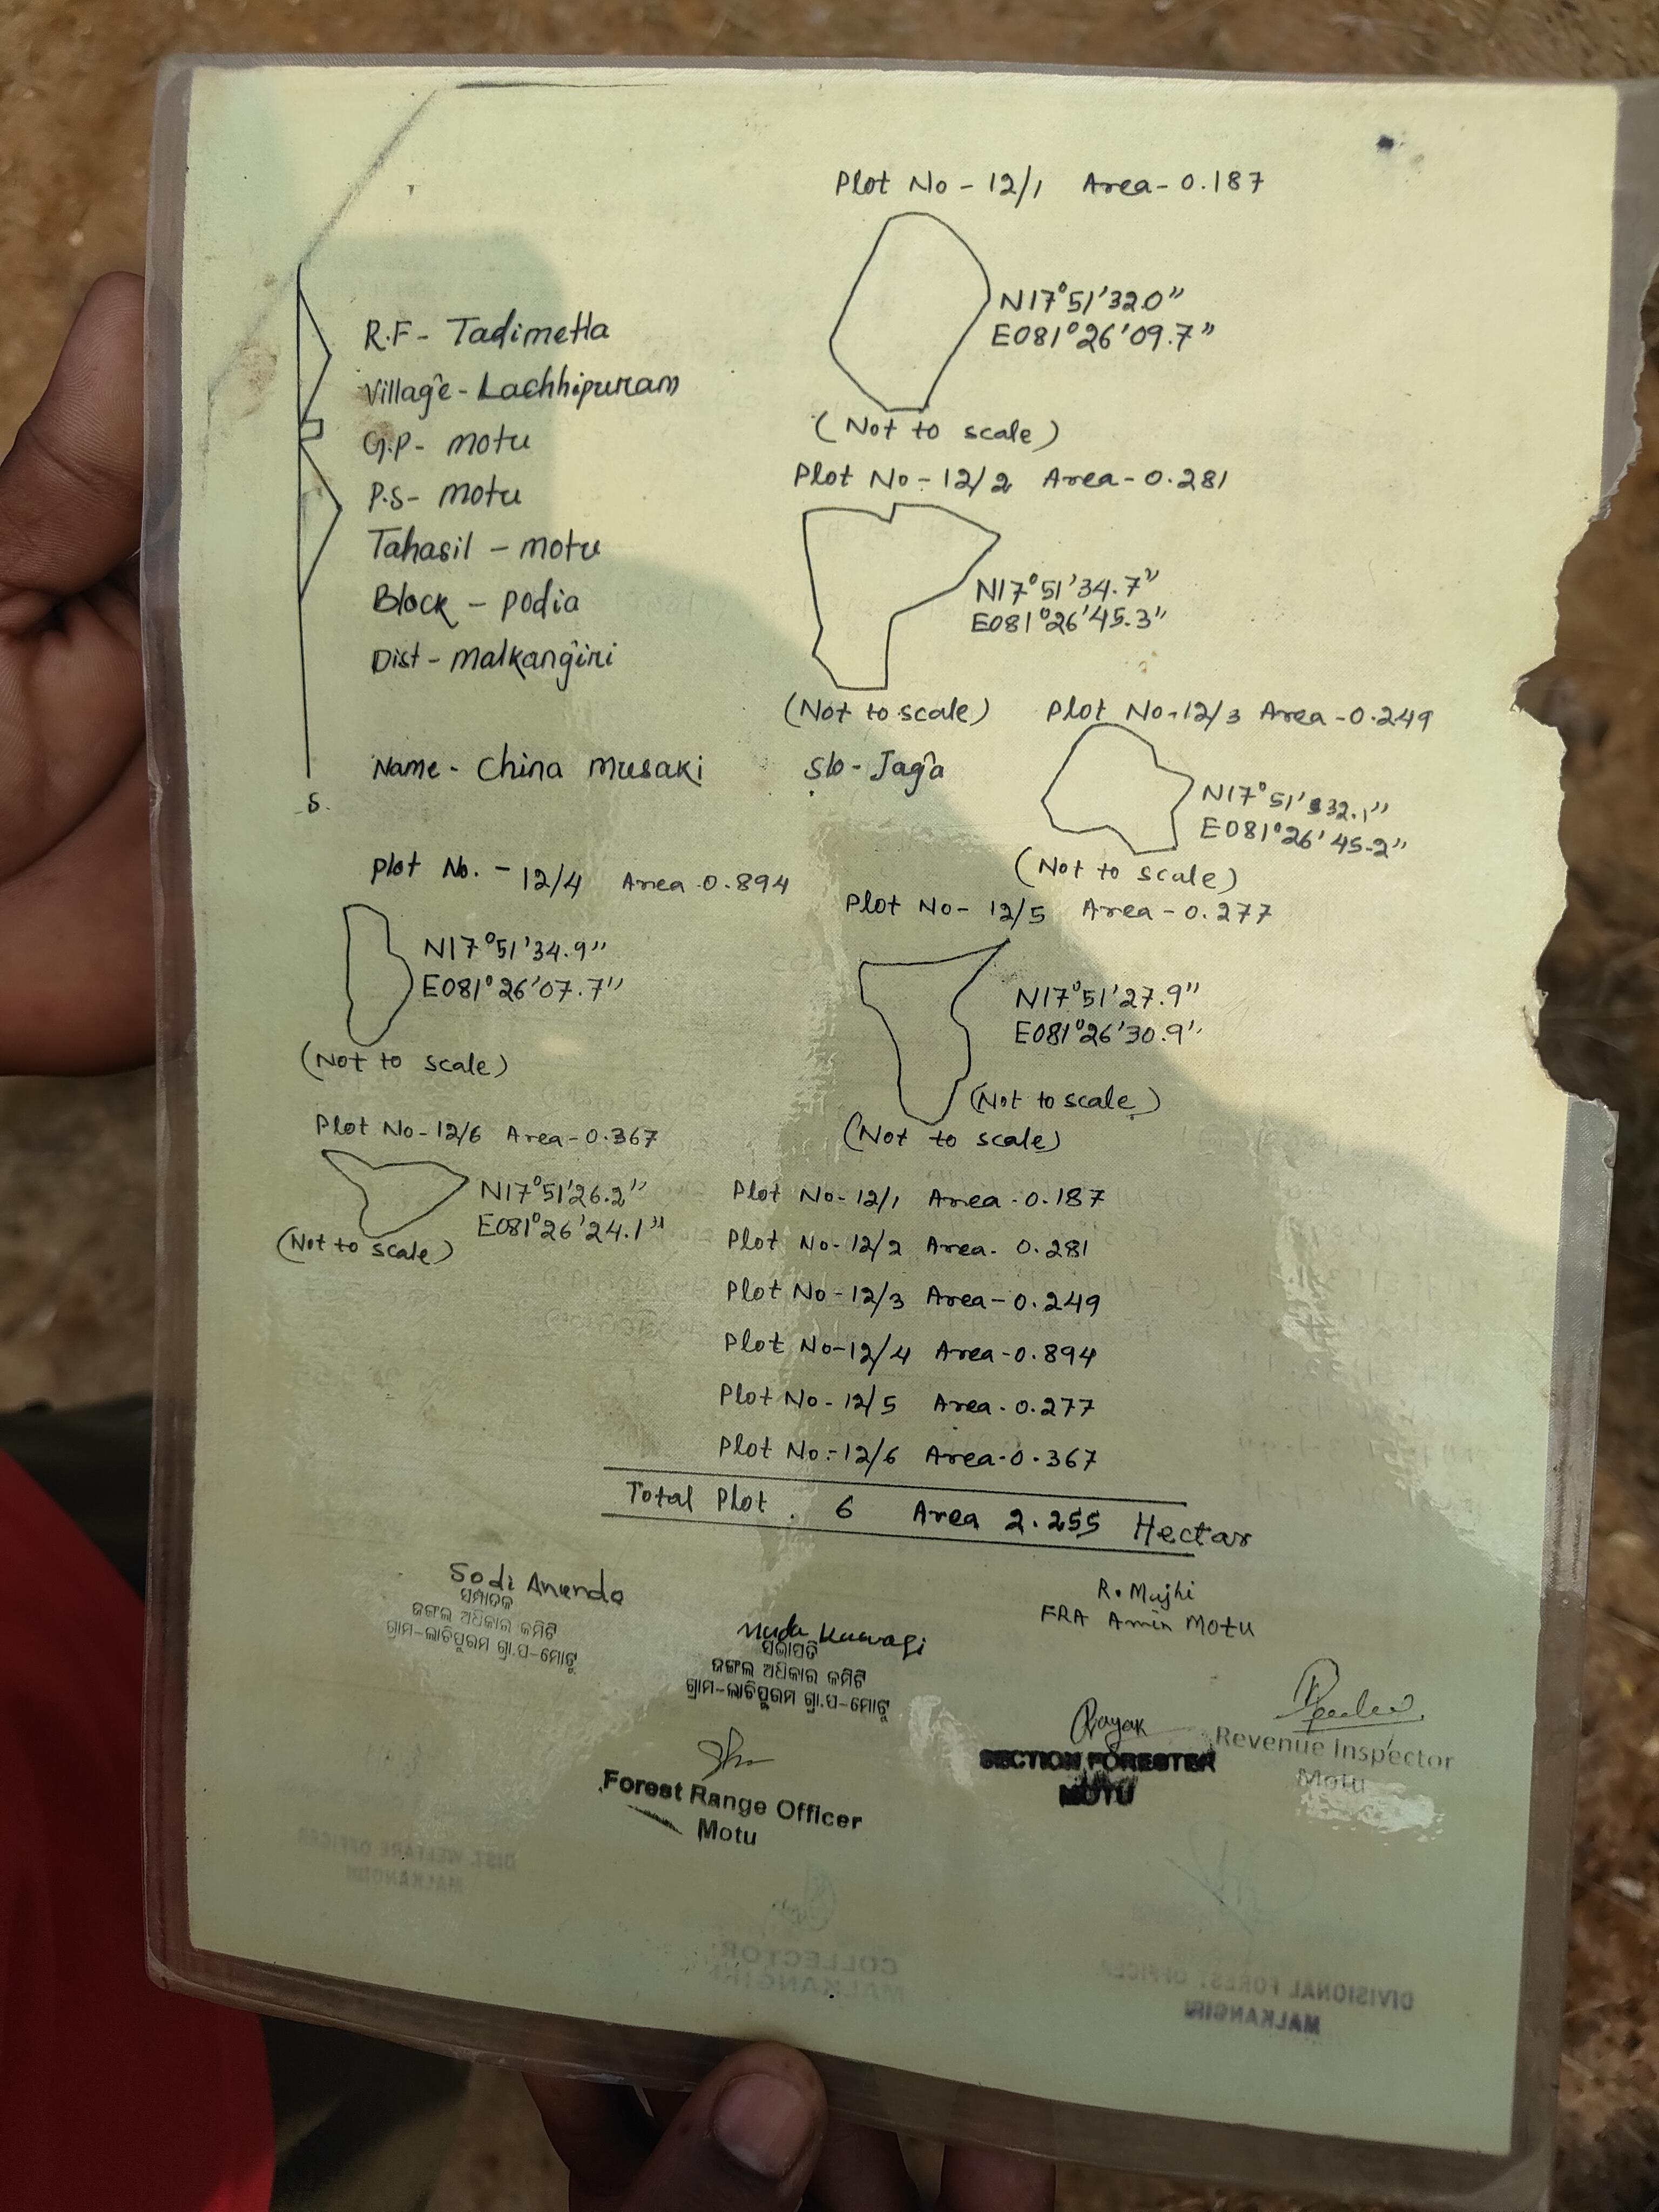 Plot No - 12/1 Area - 0.187
N17°51'32.0"
E081°26'09.7"
(Not to scale)
R.F - Tadimetla
Village - Lachhipuram
G.P - motu
P.S - motu
Tahasil - motu
Block - podia
Dist - malkangiri
Plot No - 12/2 Area - 0.281
N17°51'34.7"
E081°26'45.3"
(Not to scale)
Plot No - 12/3 Area - 0.249
N17°51'32.1"
E081°26'45.2"
(Not to scale)
Name - China musaki S/o - Jaga
S.
Plot No. - 12/4 Area 0.894
N17°51'34.9"
E081°26'07.7"
(Not to scale)
Plot No - 12/5 Area - 0.277
N17°51'27.9"
E081°26'30.9"
(Not to scale)
(Not to scale)
Plot No - 12/6 Area - 0.367
N17°51'26.2"
E081°26'24.1"
(Not to scale)
Plot No - 12/1 Area - 0.187
Plot No - 12/2 Area - 0.281
Plot No - 12/3 Area - 0.249
Plot No - 12/4 Area - 0.894
Plot No - 12/5 Area - 0.277
Plot No - 12/6 Area - 0.367
Total Plot . 6 Area 2.255 Hectar
Sodi Anando
ସମ୍ପାଦକ
ଜଙ୍ଗଲ ଅଧିକାର କମିଟି
ଗ୍ରାମ-ଲାଚିପୁରମ ଗ୍ରା.ପ-ମୋଟୁ
Muda
ସଭାପତି
ଜଙ୍ଗଲ ଅଧିକାର କମିଟି
ଗ୍ରାମ-ଲାଚିପୁରମ ଗ୍ରା.ପ-ମୋଟୁ
R. Majhi
FRA Amin Motu
Forest Range Officer
Motu
SECTION FORESTER
MOTU
Revenue Inspector
Motu
DIST. WELFARE OFFICER
MALKANGIRI
COLLECTOR
MALKANGIRI
DIVISIONAL FOREST OFFICER
MALKANGIRI